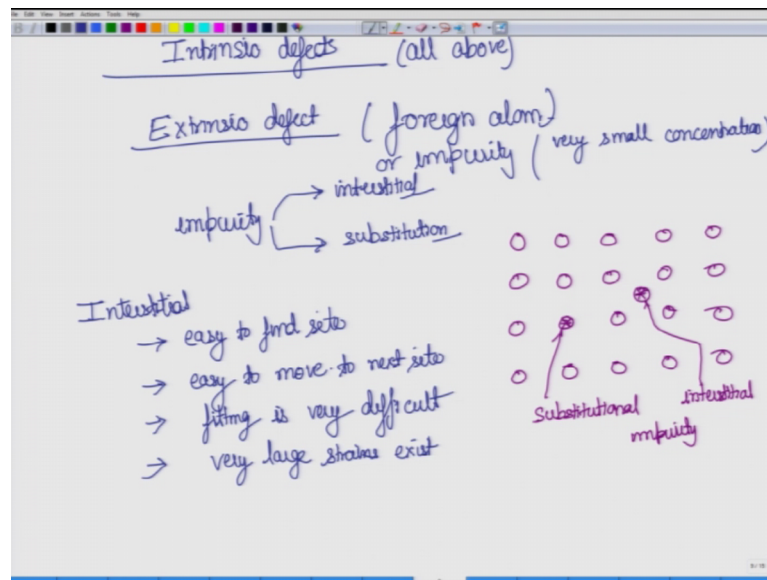 File Edit View Insert Actions Tools Help
Intrinsic defects (all above)
Extrinsic defect (foreign atom)
or impurity (very small concentration)
impurity → interstitial
→ substitution
Interstitial
→ easy to find sites
→ easy to move to next site
→ fitting is very difficult
→ very large strains exist
Substitutional
interstitial
impurity